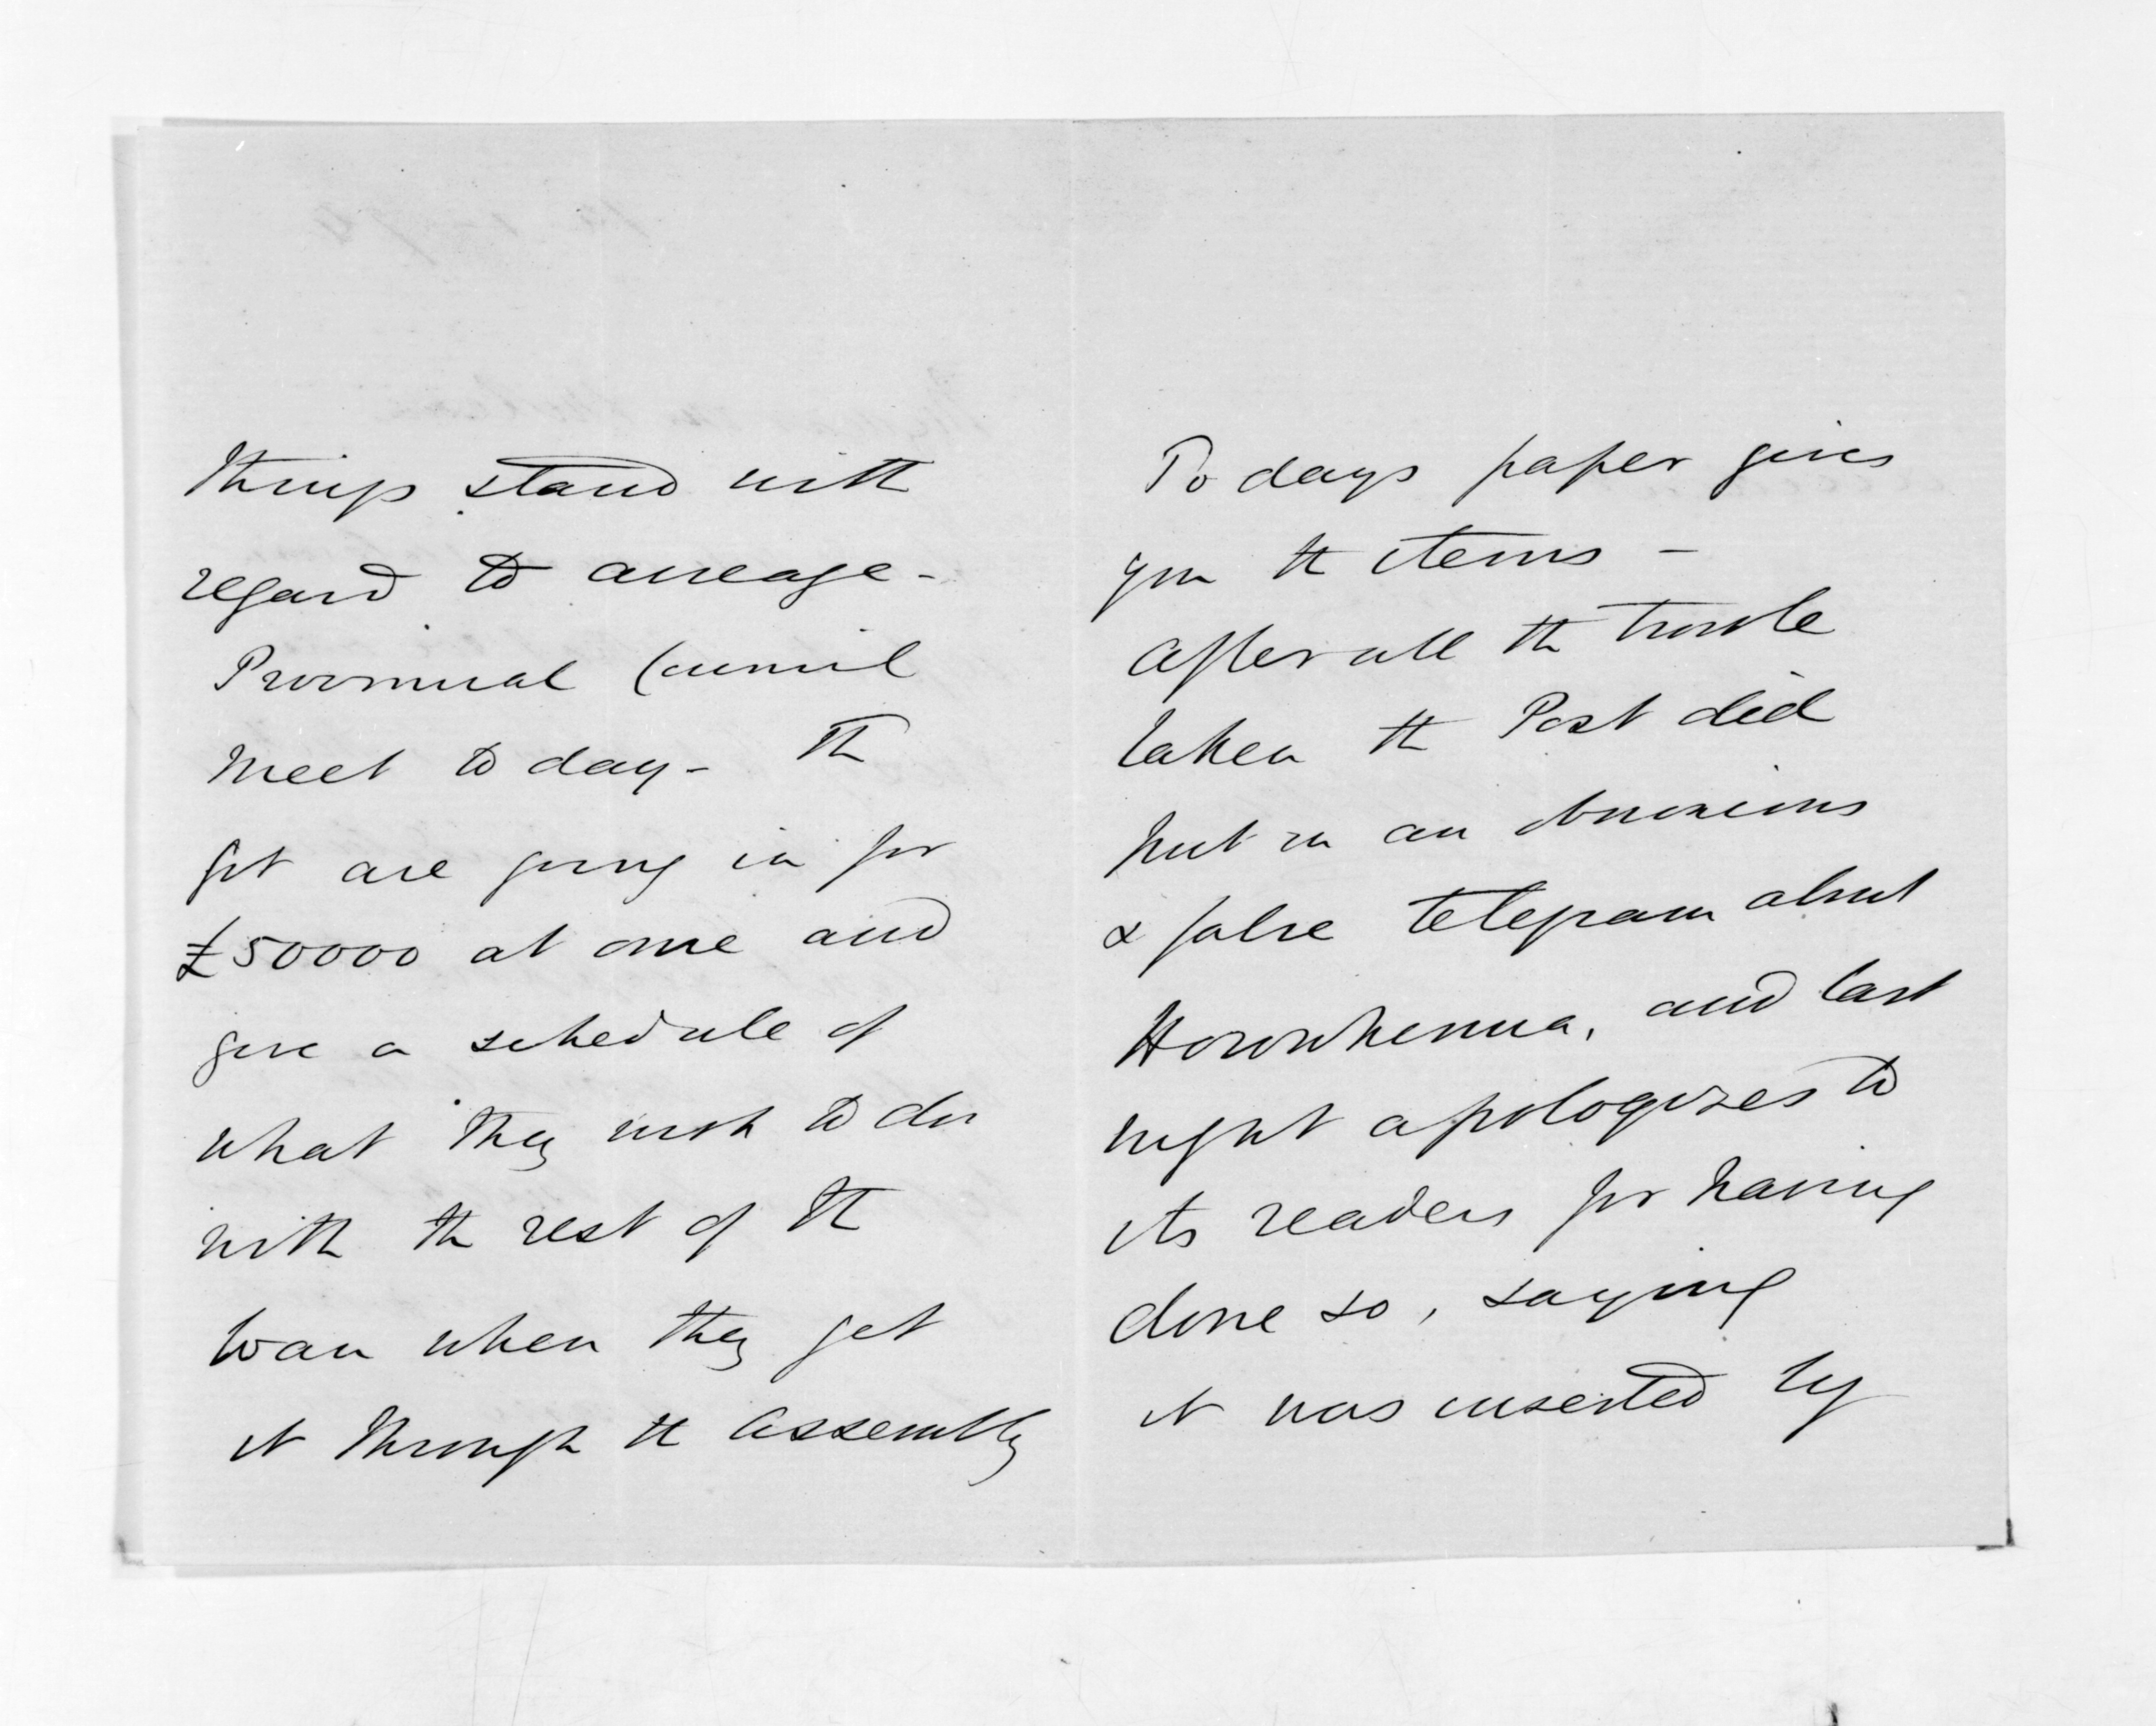 things stand with
regard to acreage -
Provincial Council
meet to day - The
Govt are going in for
£50000 at once and
give a schedule of
what they wish to do
with the rest of the
loan when they get
it through the Assembly
To days paper gives
you the items -
After all the trouble
taken the Post did
put in an obnoxious
& false telegram about
Horowhenua, and last
night apologizes to
its readers for having
done so, saying
it was inserted by